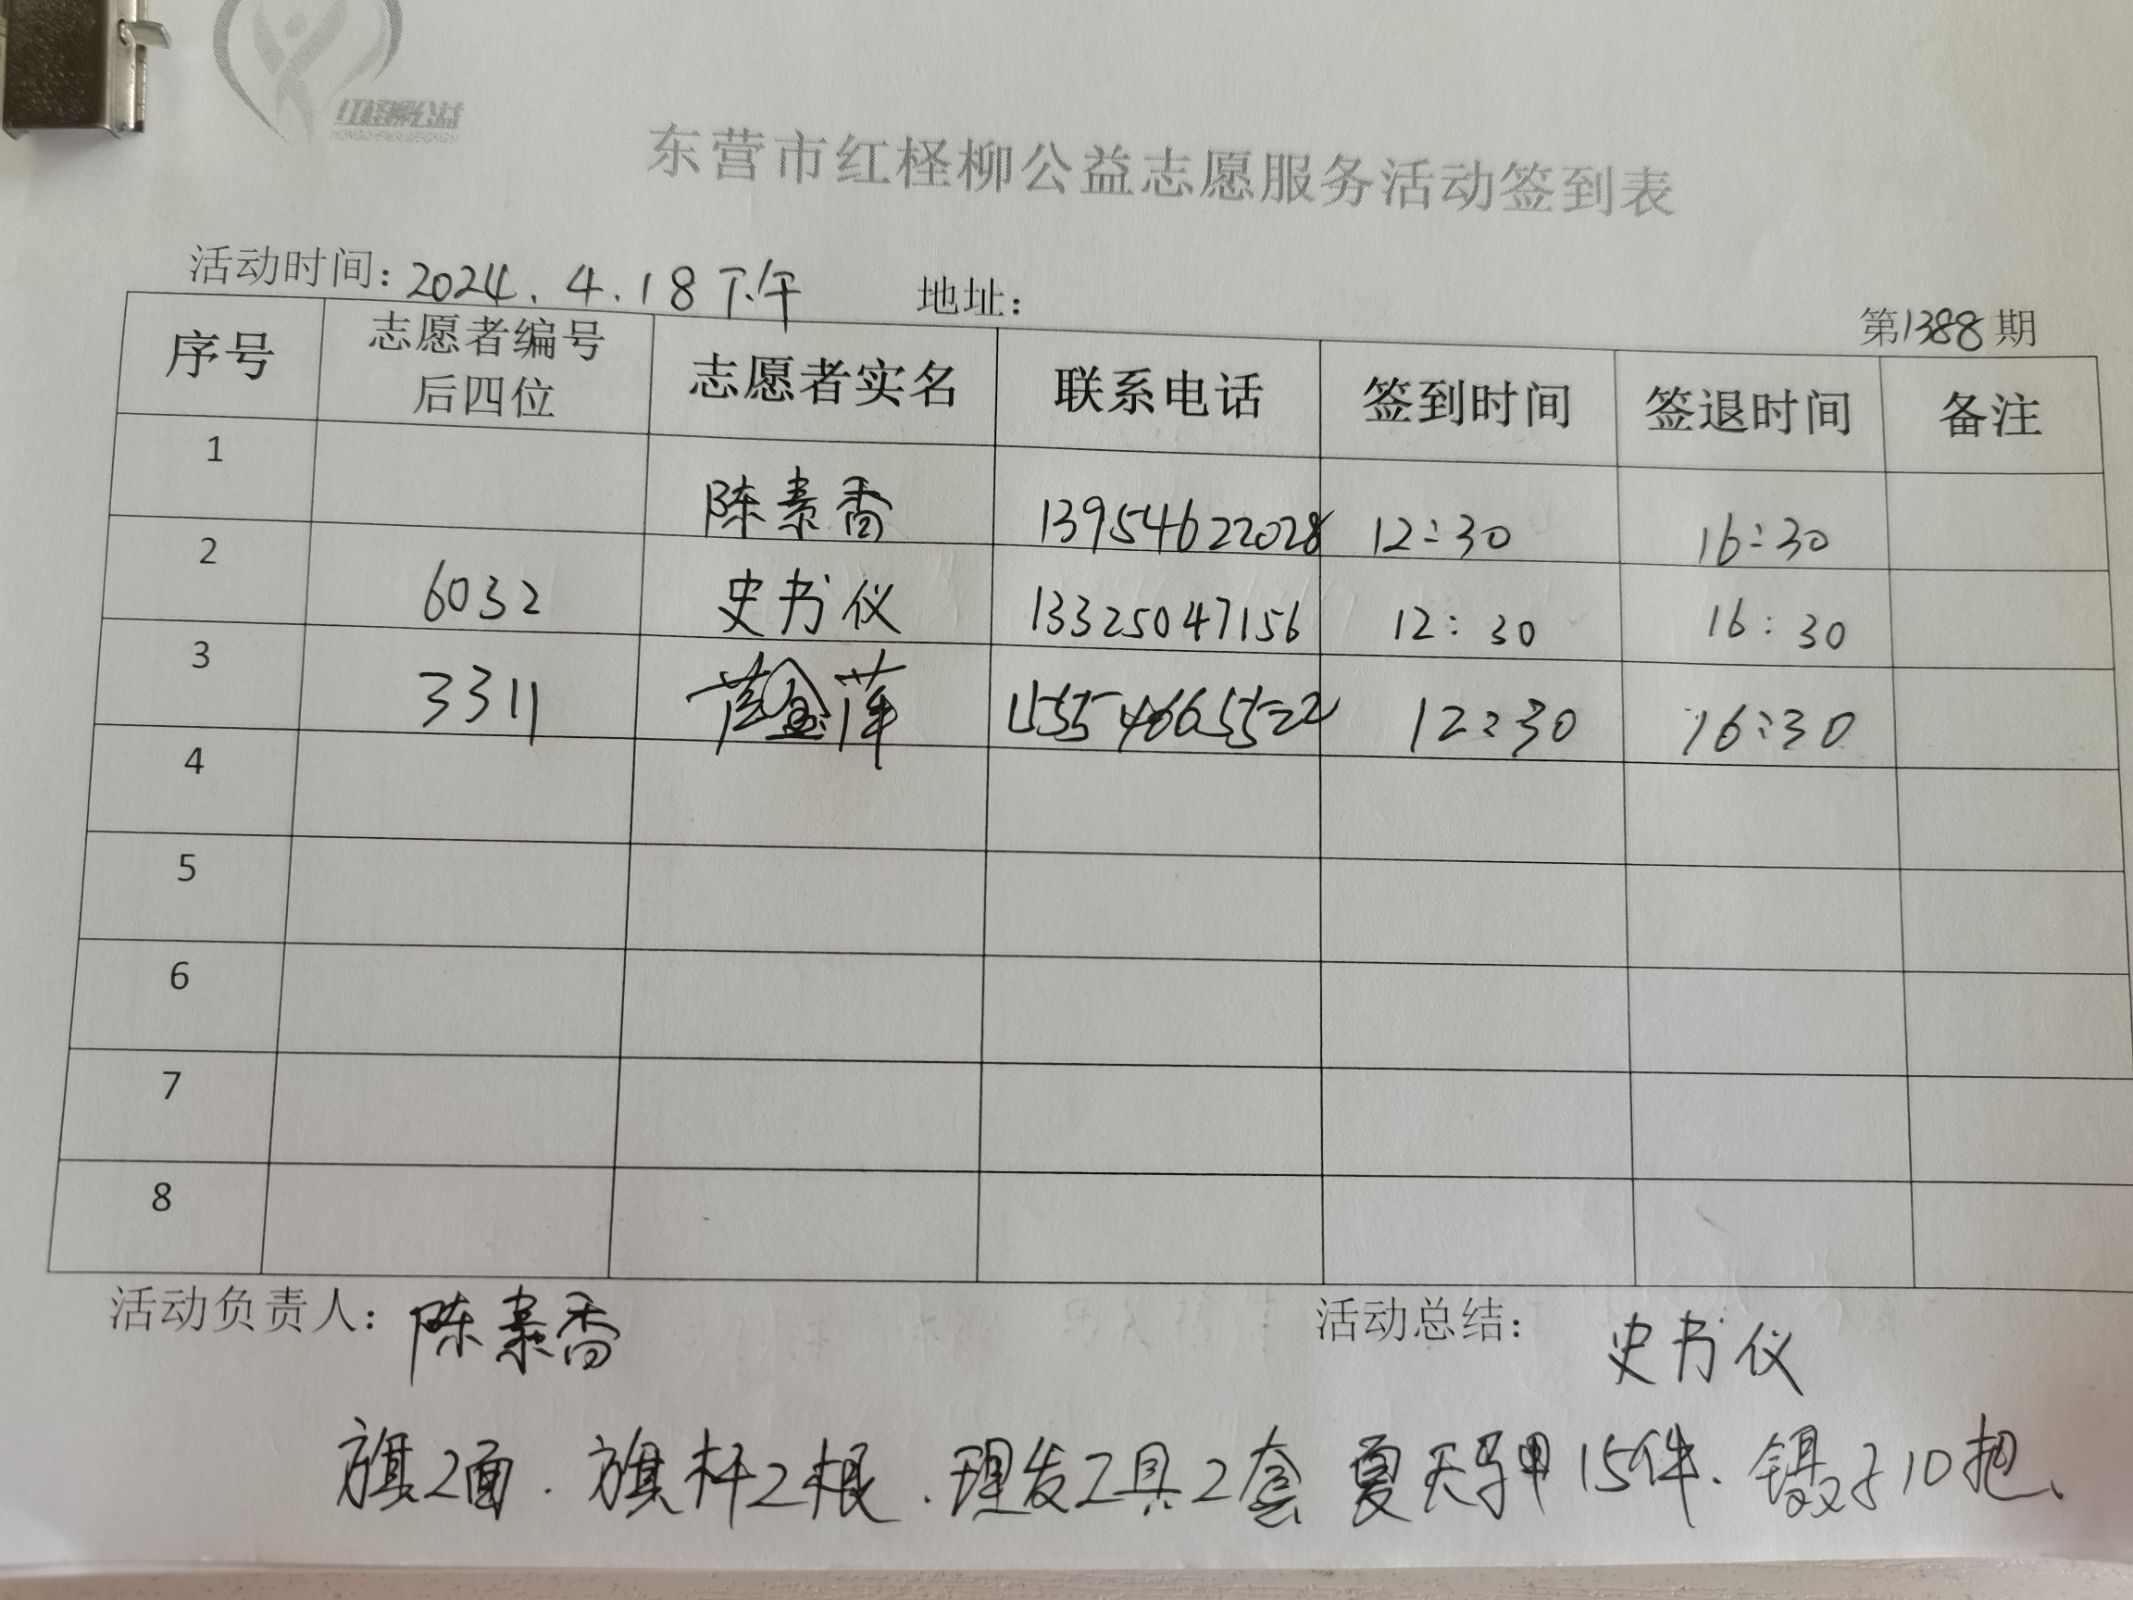 红柽柳公益
东营市红柽柳公益志愿服务活动签到表
活动时间：2024.4.18下午 地址：
第1388期
序号 志愿者编号后四位 志愿者实名 联系电话 签到时间 签退时间 备注
1 陈素香 13954622028 12:30 16:30
2 6032 史书仪 13325047156 12:30 16:30
3 3311 12:30 16:30
4
5
6
7
8
活动负责人：陈素香 活动总结：史书仪
旗2面．旗杆2根．理发工具2套 夏天马甲15件．镊子10把、